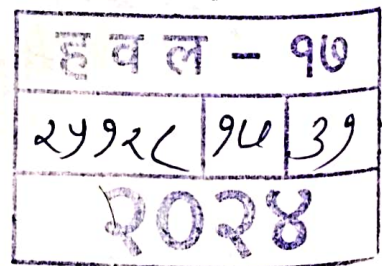 हवल - १७
२५१२८ १५ ३१
२०२४